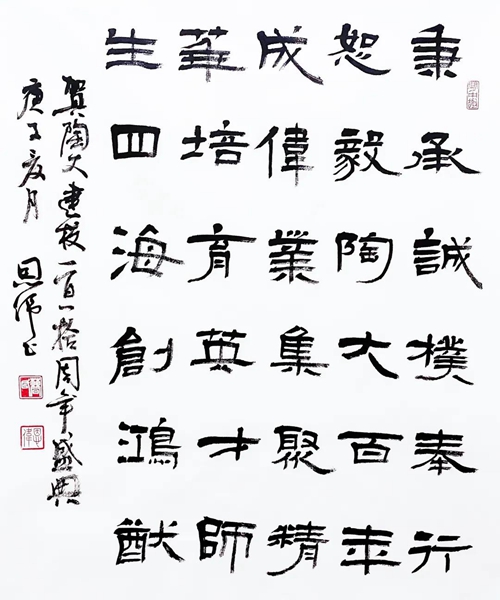 秉承誠樸奉行
恕毅陶大百年
成偉業集聚精
華培育英才師
生四海創鴻猷
賀陶大建校一百一拾周年盛典
庚子夏月